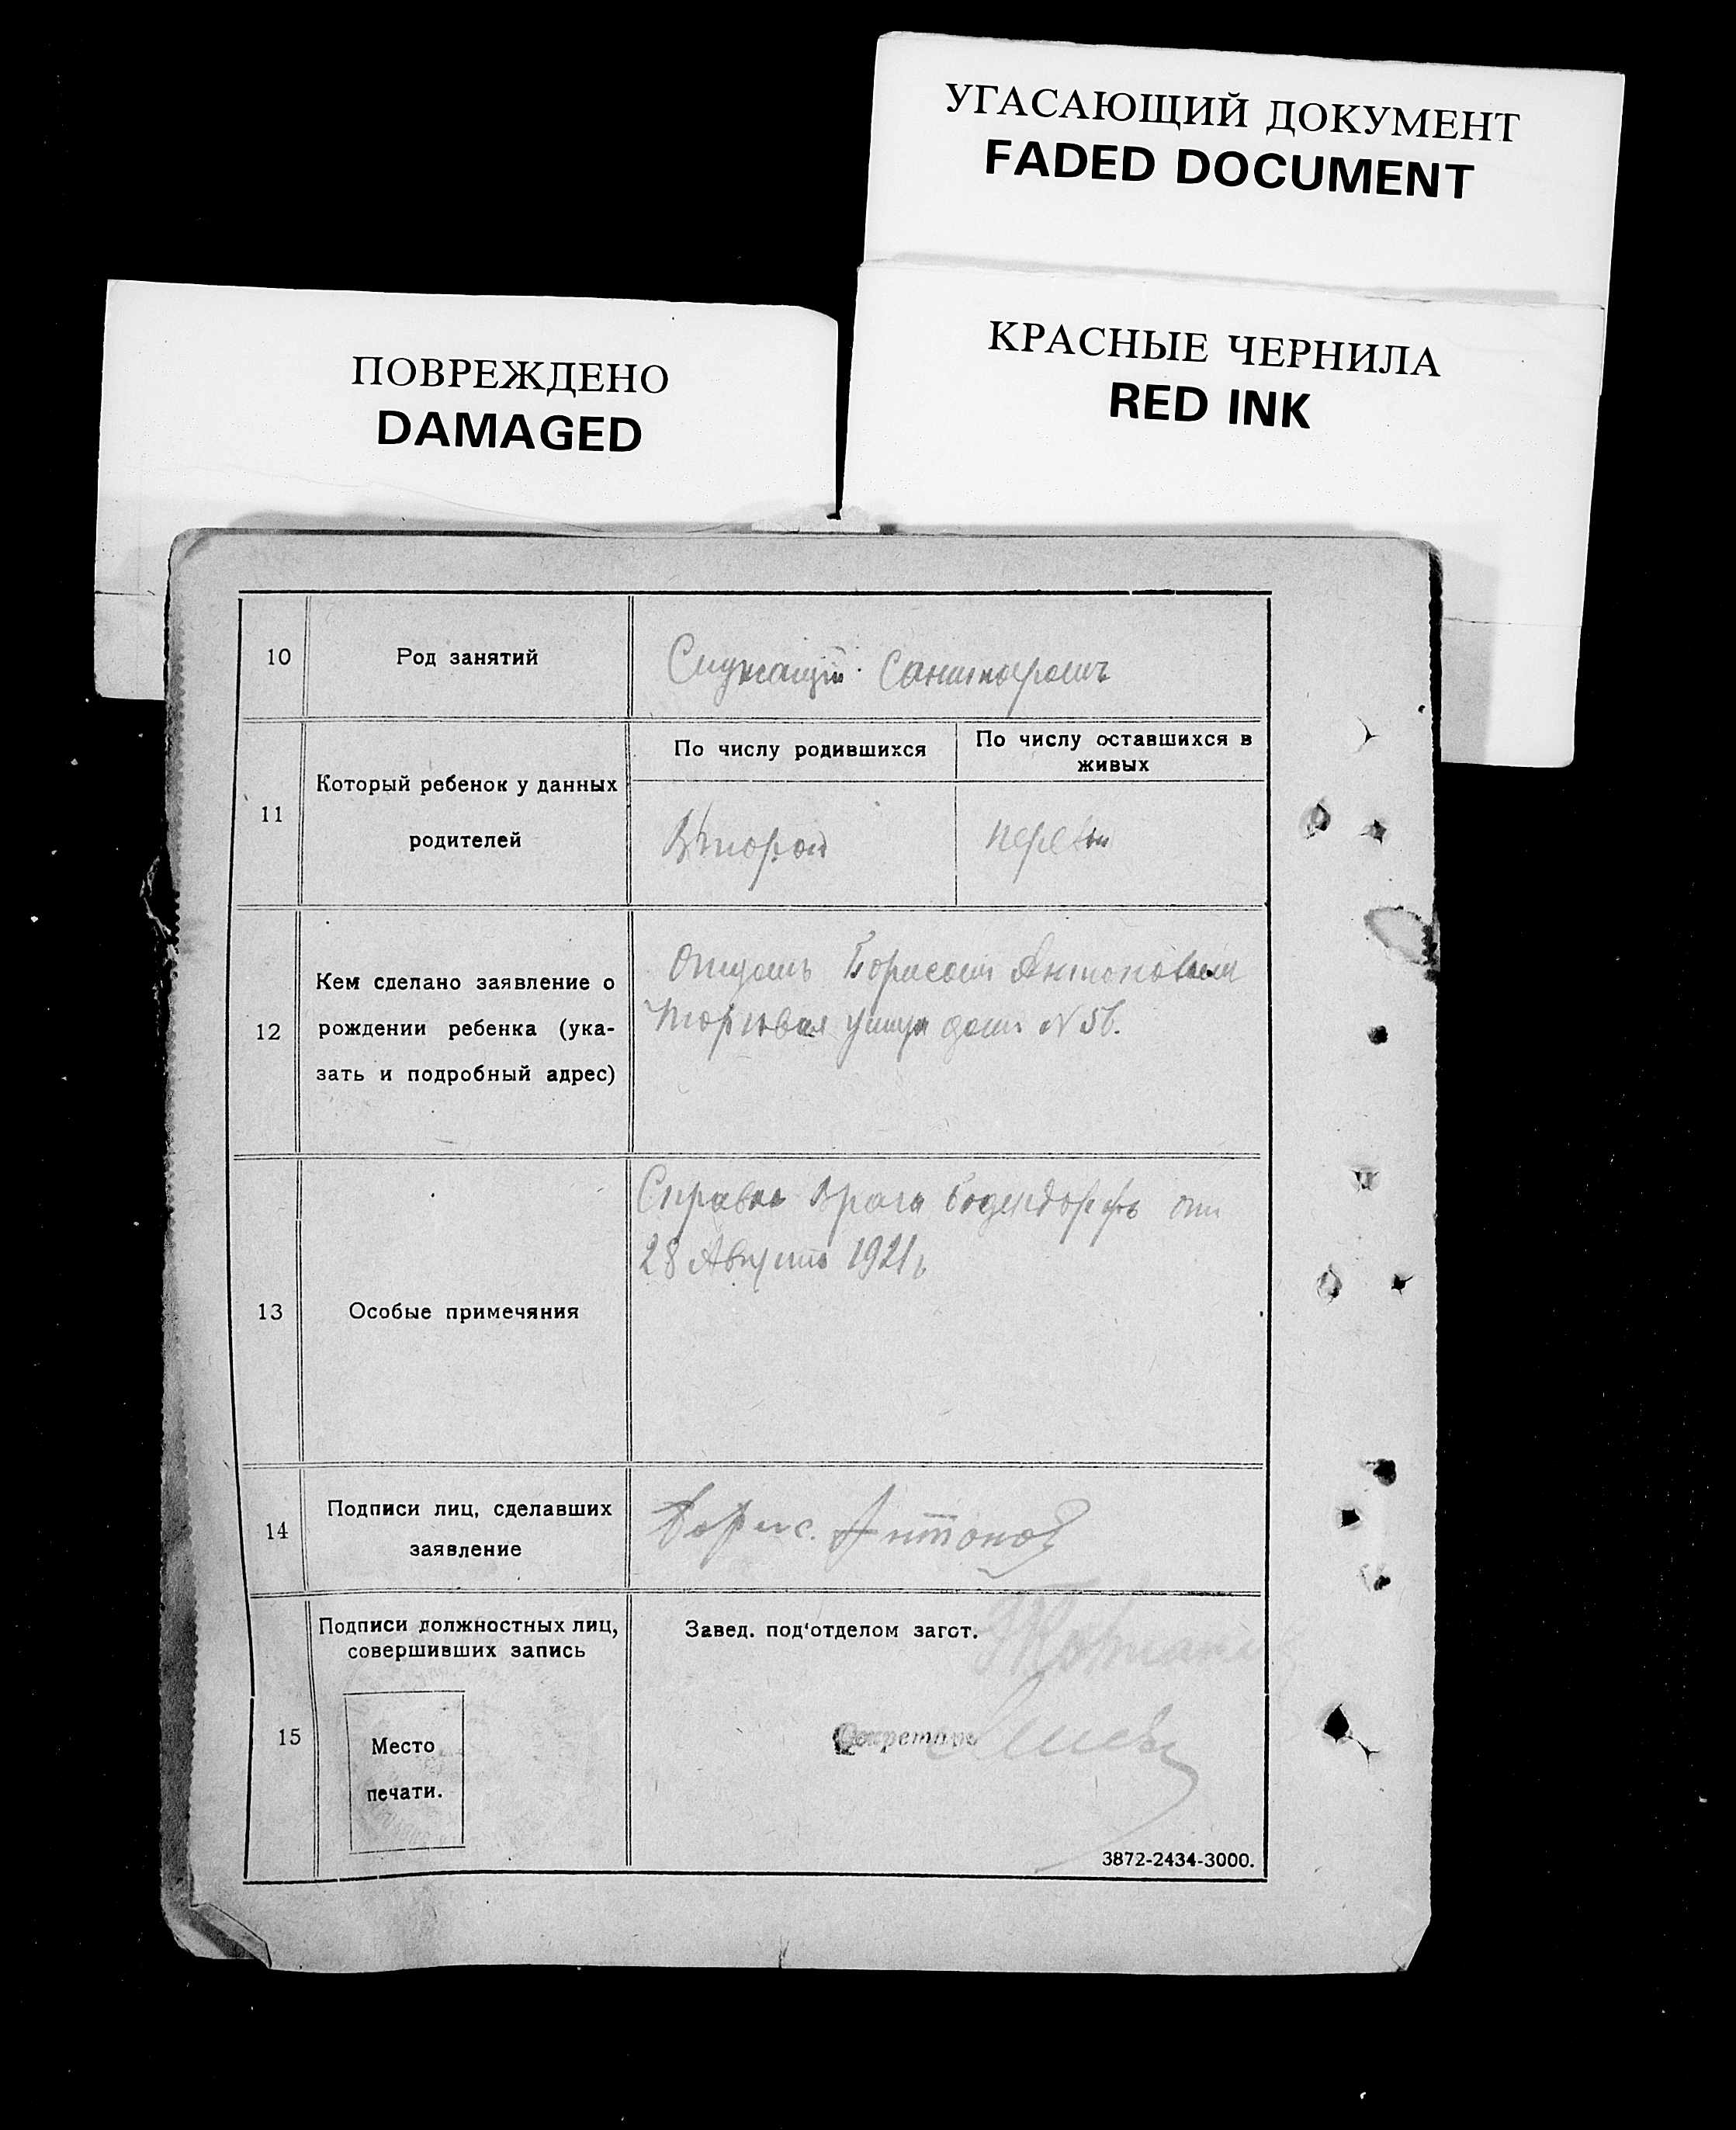 УГАСАЮЩИЙ ДОКУМЕНТ
FADED DOCUMENT
КРАСНЫЕ ЧЕРНИЛА
RED INK
ПОВРЕЖДЕНО
DAMAGED
10
Род занятий
Служащiй Санитаромъ
11
Который ребенок у данных
родителей
По числу родившихся
По числу оставшихся в
живых
Второй
первы
12
Кем сделано заявление о
рождении ребенка (ука-
зать и подробный адрес)
Отцомъ Борисом Антоновым
Торговая улица дом N 56.
13
Особые примечяния
Справка врага от
28 Августа 1921г
14
Подписи лиц, сделавших
заявление
Борис. Антонов
15
Подписи должностных лиц,
совершивших запись
Место
печати.
Завед. под‘отделом загст.
Секретарь
3872-2434-3000.